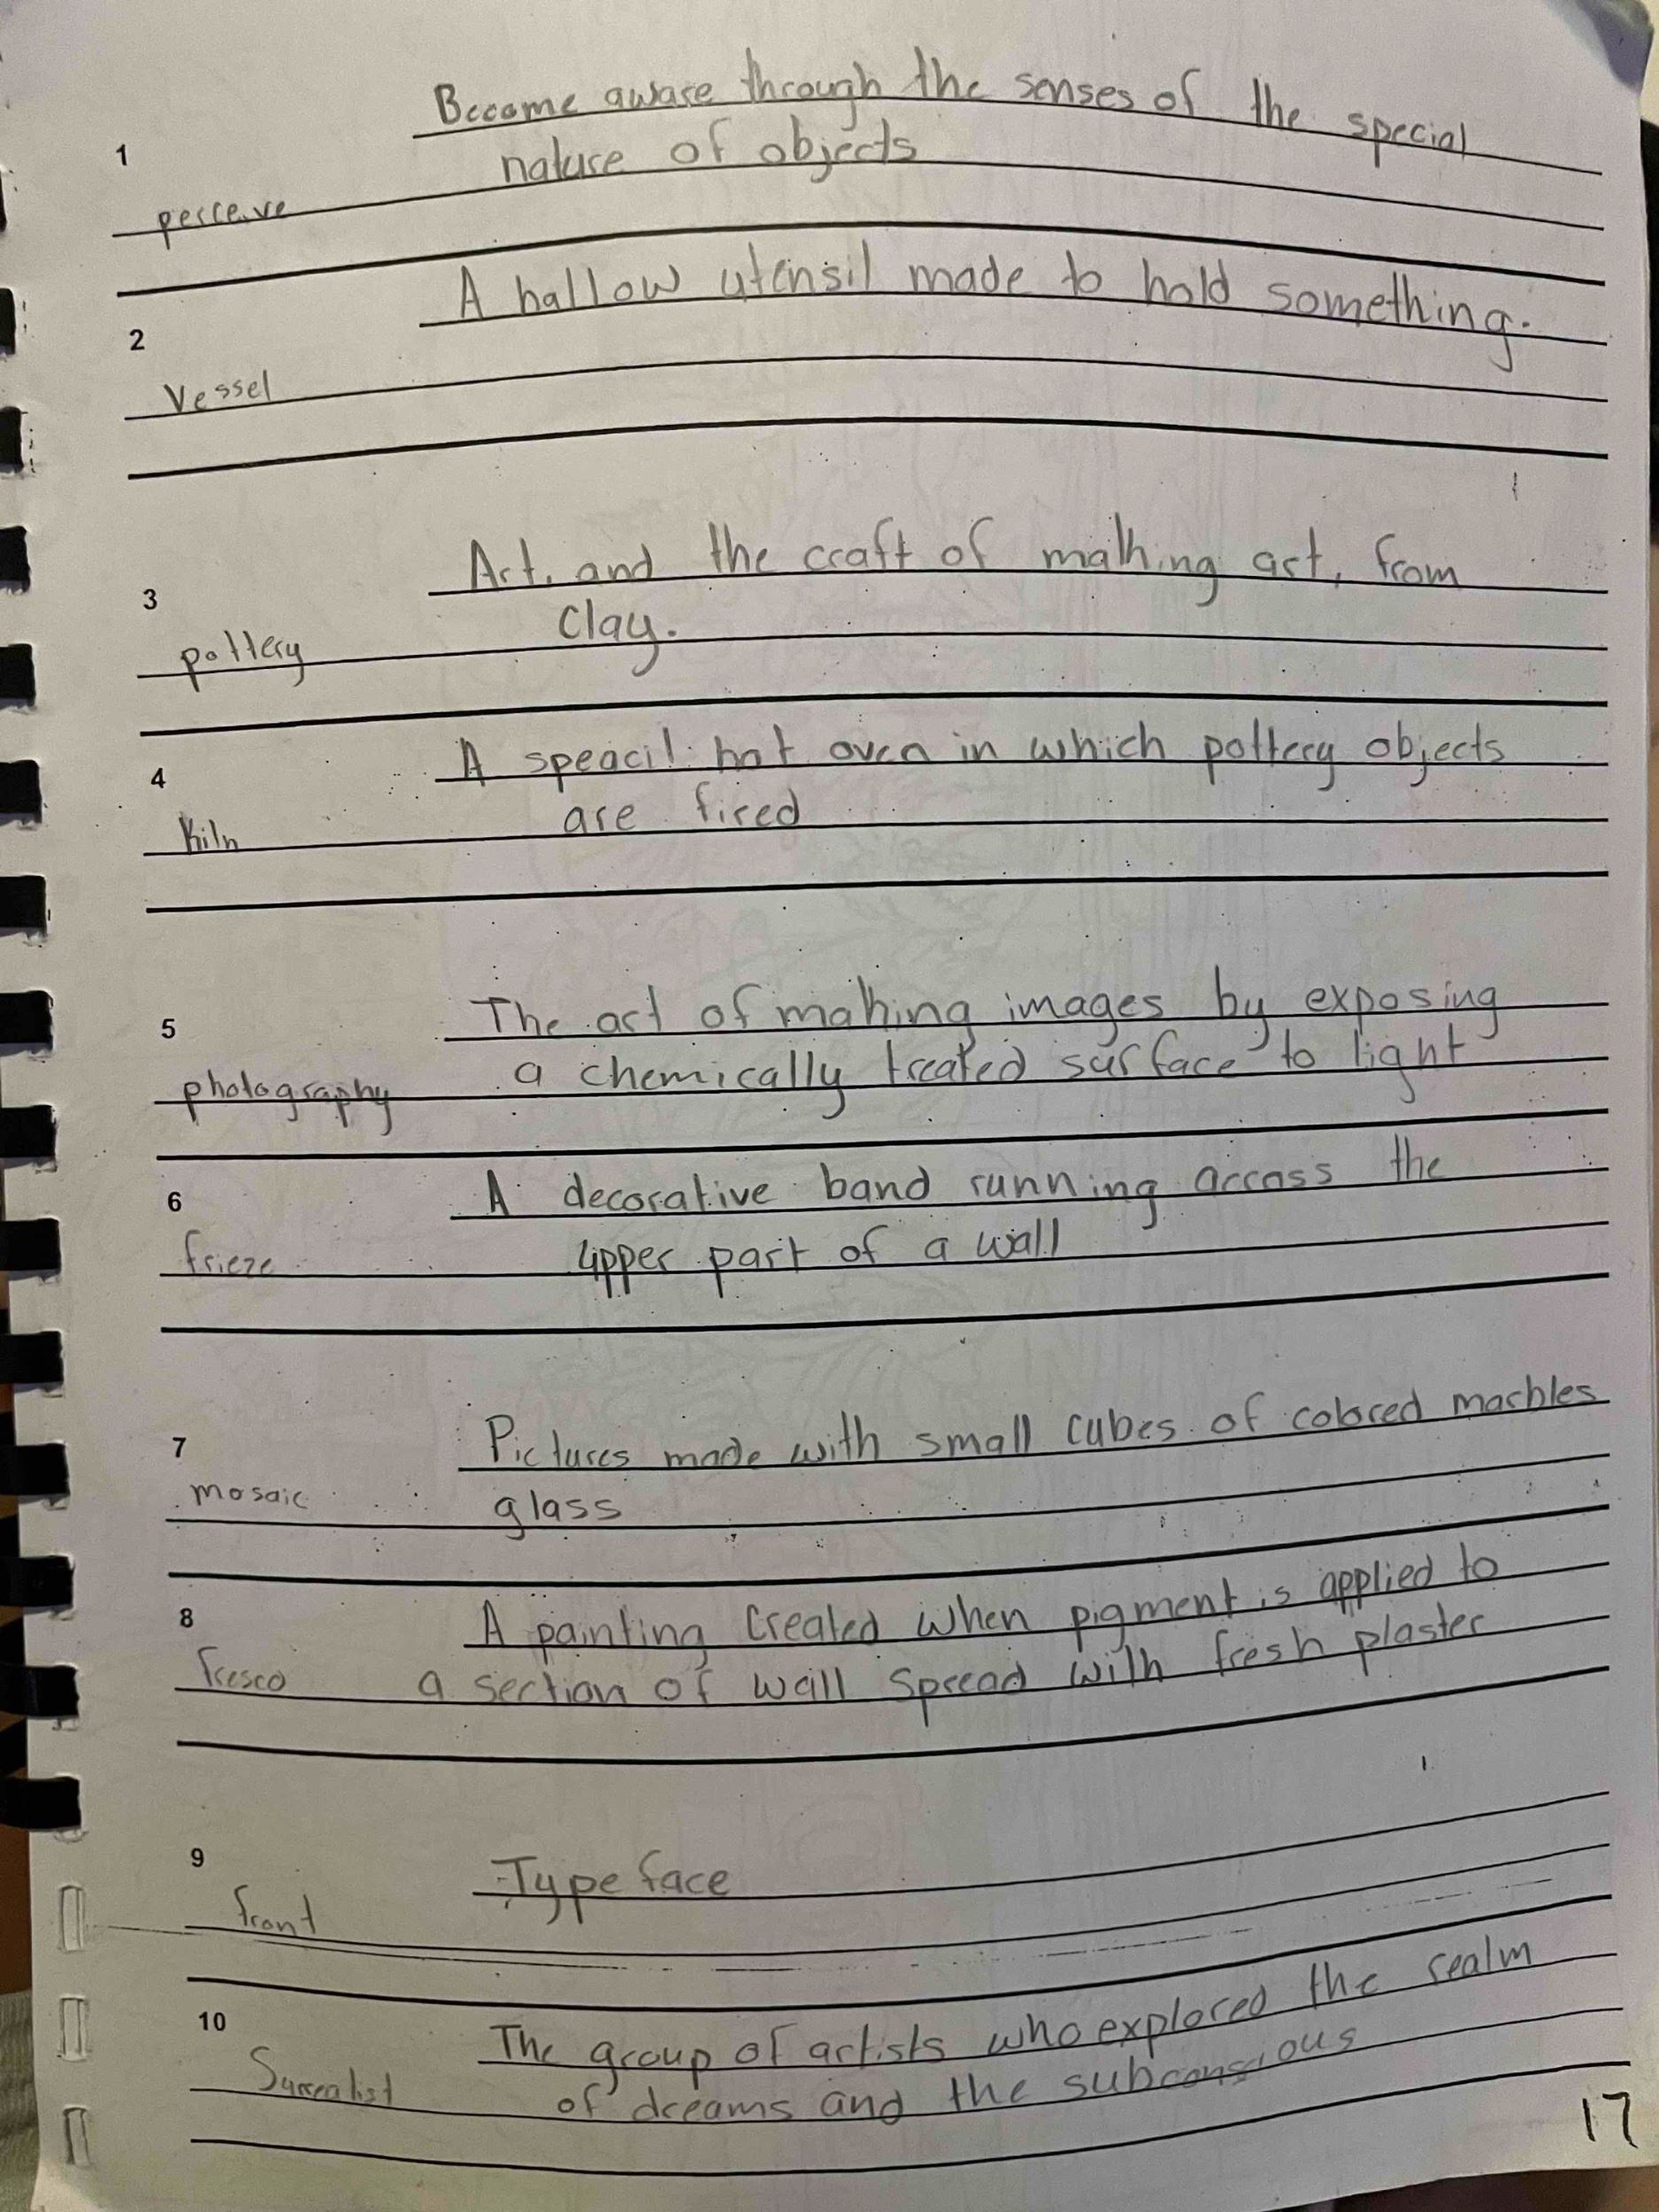 1
Become aware through the senses of the special
nature of objects
perceive
2
A hallow utensil made to hold something.
Vessel
3
Art, and the craft of making art, from
clay.
pottery
4
A speacil hot oven in which pottery objects
are fired
Kiln
5
The art of making images by exposing
a chemically treated surface to light
photography
6
A decorative band running accoss the
upper part of a wall
frieze
7
Pictures made with small cubes of colored marbles
glass
mosaic
8
A painting Created when pigment is applied to
a section of wall spread with fresh plaster
fresco
9
Type face
front
10
The group of artists who explored the realm
of dreams and the subconscious
Surrealist
17